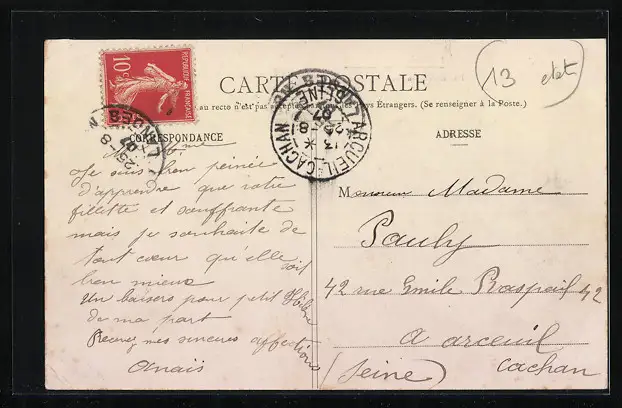 CARTE POSTALE
au recto n'est pas accepté
ys Étrangers. (Se renseigner à la Poste.)
13
10c
REPUBLIQUE FRANCAISE
ARCUEIL-CACHAN
SEINE
13
25-8
07
CORRESPONDANCE
ADRESSE
Je suis bien peinée
d'apprendre que votre
fillette et souffrante
mais je souhaite de
tout cœur qu'elle soit
bien mieux
Un baisers pour petit Hélène
de ma part
Recevez mes sinceres affections
Anaïs
Monsieur Madame
Pauly
42 rue Emile Raspail 42
a arceuil
Cachan
(Seine)